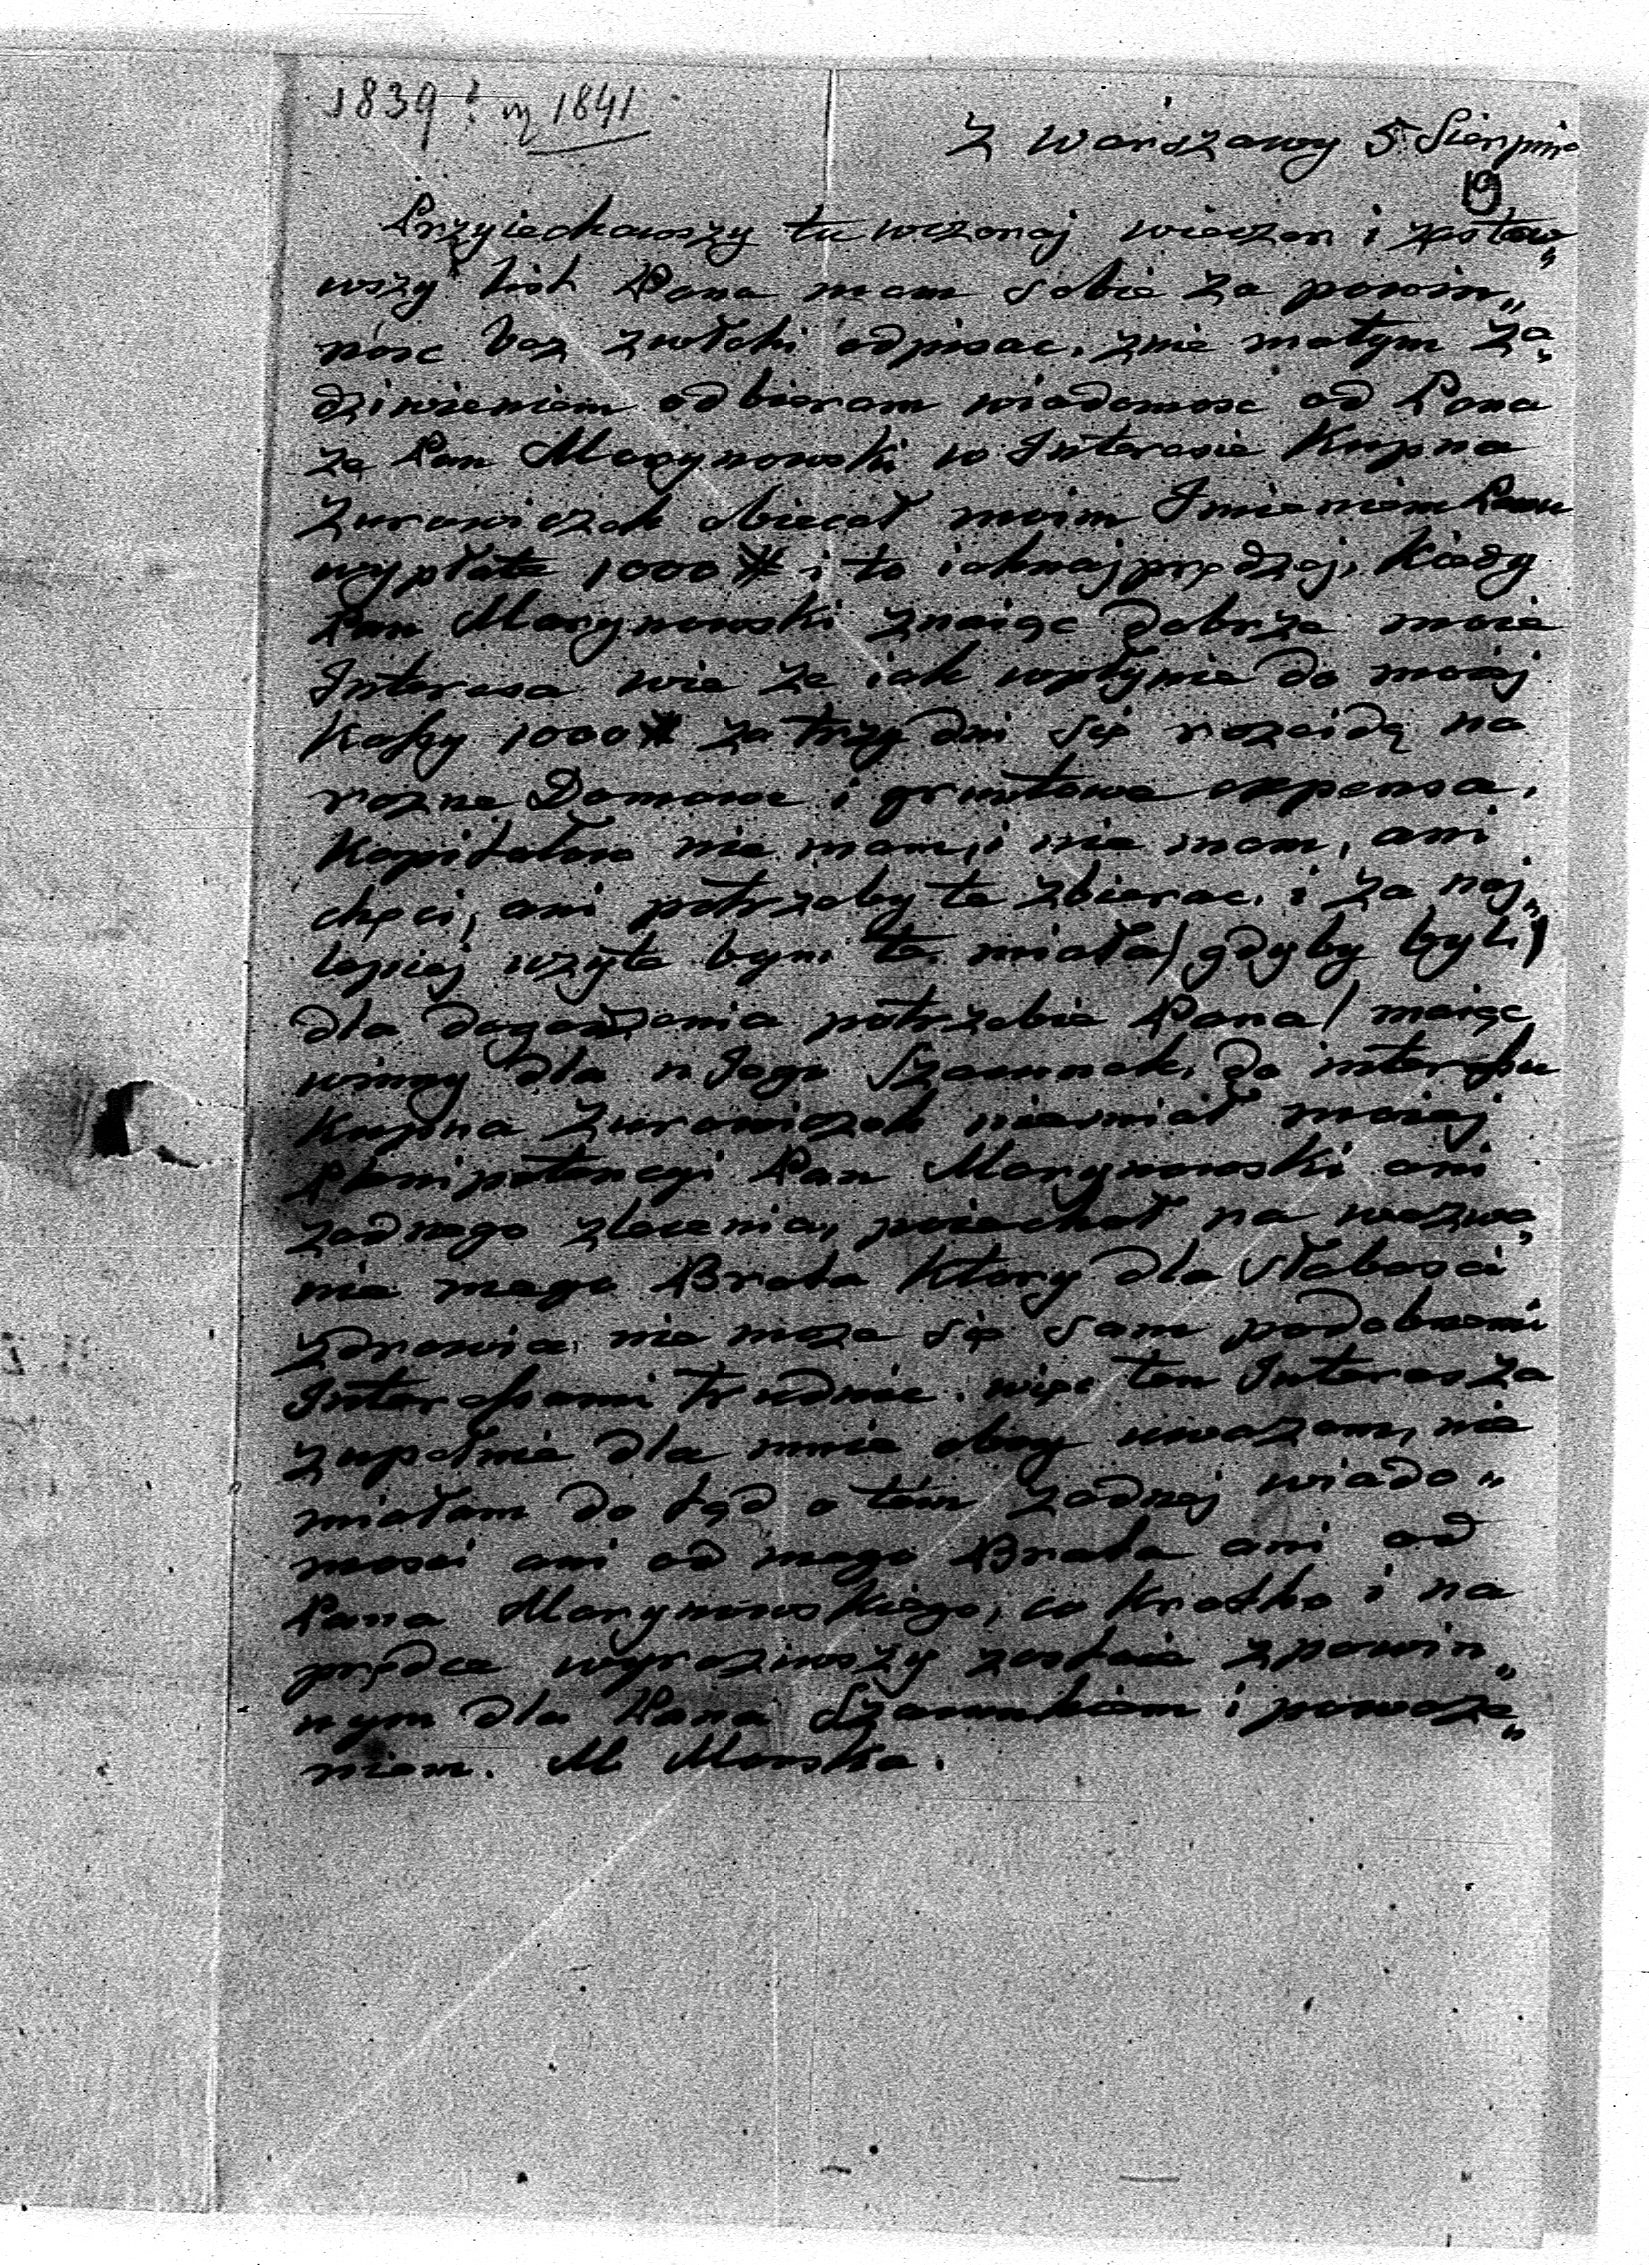 1839? czy 1841
Z Warszawy 5 Sierpnia
19
Przyiechawszy tu wczoraj wieczor i zastaw„
wszy list Pana mam sobie za powin„
nosc bez zwłoki odpisac, z nie małym za„
dziwieniem odbieram wiadomosc od Pana
ze Pan Marynowski w Interesie Kupna
Zurawiczek obiecał moim Imieniem Panu
wypłate 1000 # i to iaknajprędzej, Kiedy
Pan Marynowski znaiąc dobrze moie
Interesa wie ze iak wpłynie do moiej
Kassy 1000 # za trzy dni się rozeidą na
rozne Domowe i gruntowe expensa,
Kapitałow nie mam, i nie mam, ani
chęci, ani potrzeby te zbierac, i za naj„
lepiej uzyte bym te miała/ gdyby byli/
dla dogodzenia potrzebie Pana/ maiąc
winny dla niego Szacunek, do interessu
Kupna Zurawiczek niemiał moiej
Plenipotencyi Pan Marynowski ani
zadnego zlecenia, poiechał na wezwa„
nie mego Brata Ktory dla słabosci
zdrowia, nie moze się sam podobnemi
Interessami trudnic. więc ten Interes za
zupełnie dla mnie obcy uwazam, nie
miałam do tąd o tém zadnej wiado„
mosci ani od mego Brata ani od
Pana Marynowskiego, co krotko i na
prędce wyraziwszy zostaie z powin„
nym dla Pana Szacunkiem i powaza„
niem. M Morska.